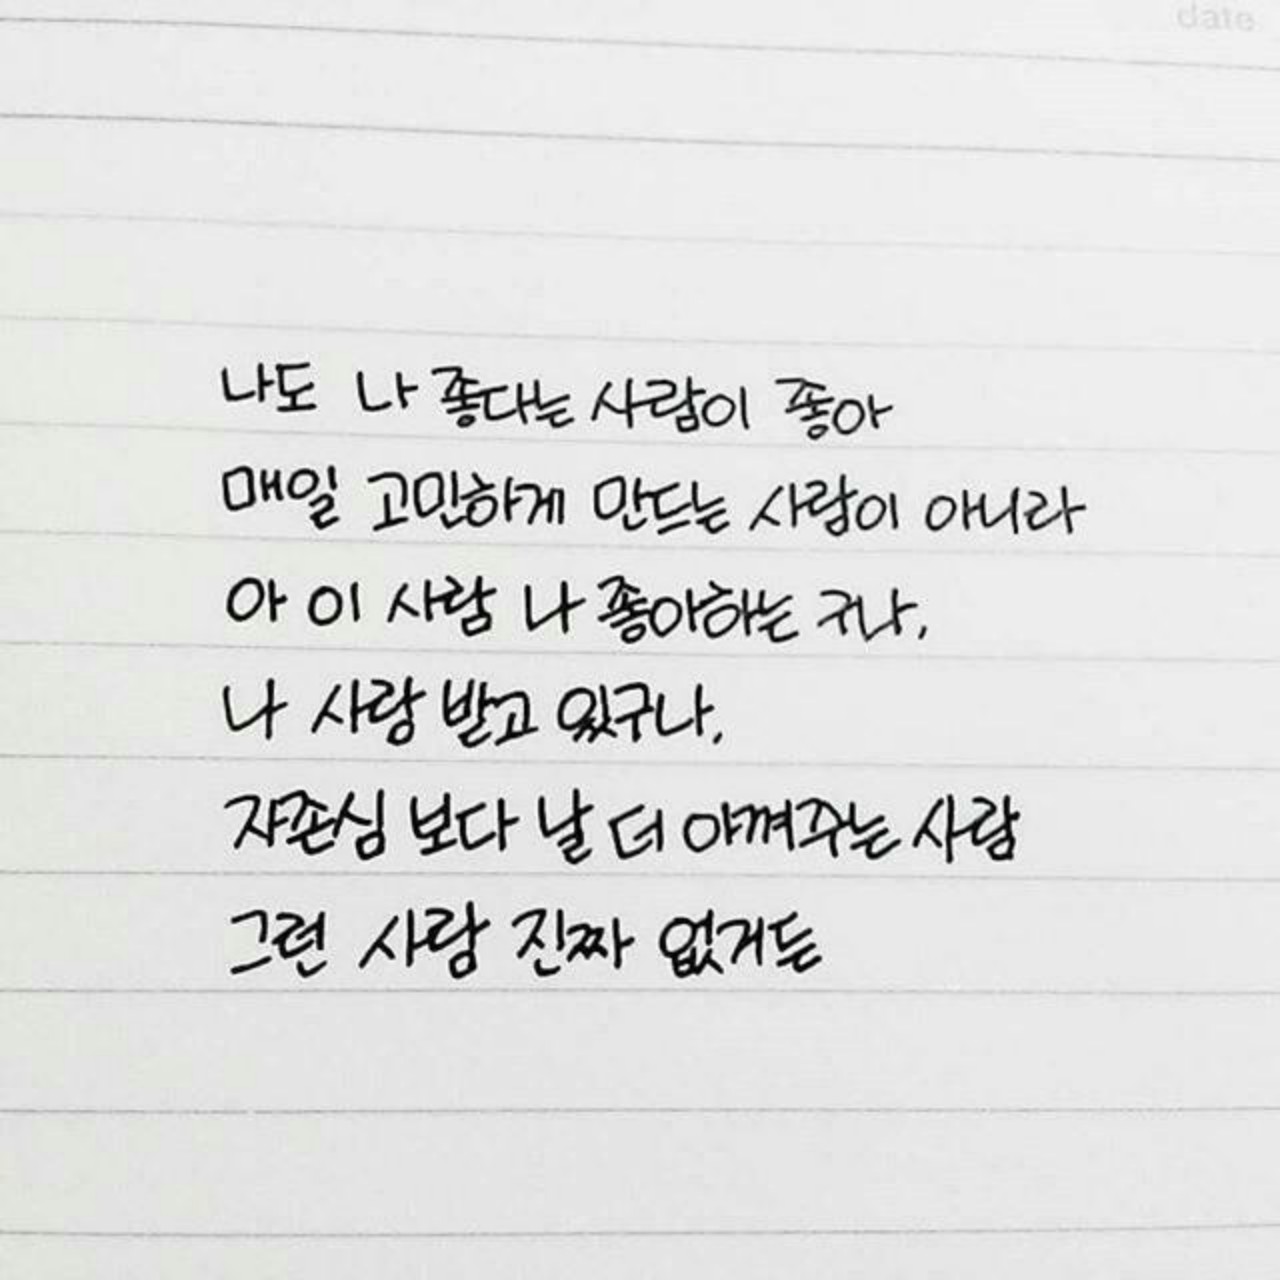 date
나도 나 좋다는 사람이 좋아
매일 고민하게 만드는 사람이 아니라
아 이 사람 나 좋아하는 구나,
나 사랑 받고 있구나,
자존심 보다 날 더 아껴주는 사람
그런 사람 진짜 없거든